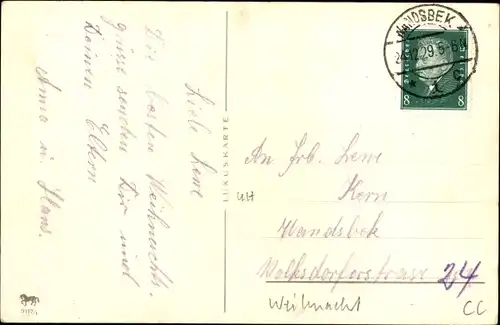 Liebe Lene
Die besten Weihnachts-
grüsse senden Dir und
Deinen Eltern
Anna u. Hans.
LUXUSKARTE
WANDSBEK
24.12.29.5-6N
* 1 c
DEUTSCHES REICH
8 8
An Frl. Lene
Kern
Wandsbek
Volksdorferstrasse 24
UH
Weihnacht
CC